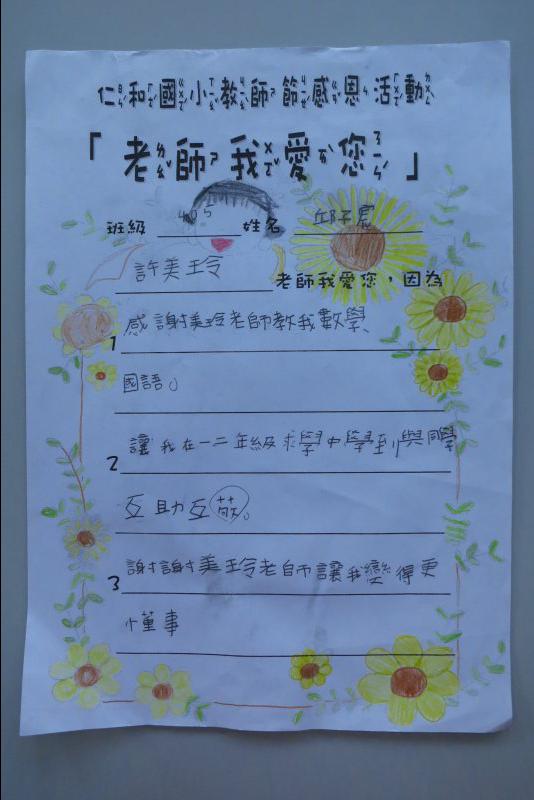 仁和國小教師節感恩活動
「老師我愛您」
班級 405 姓名 邱子宸
許美玲 老師我愛您，因為
1 感謝美玲老師教我數學
國語。
2 讓我在一二年級求學中學到與同學
互助互敬。
3 謝謝美玲老師讓我變得更
懂事